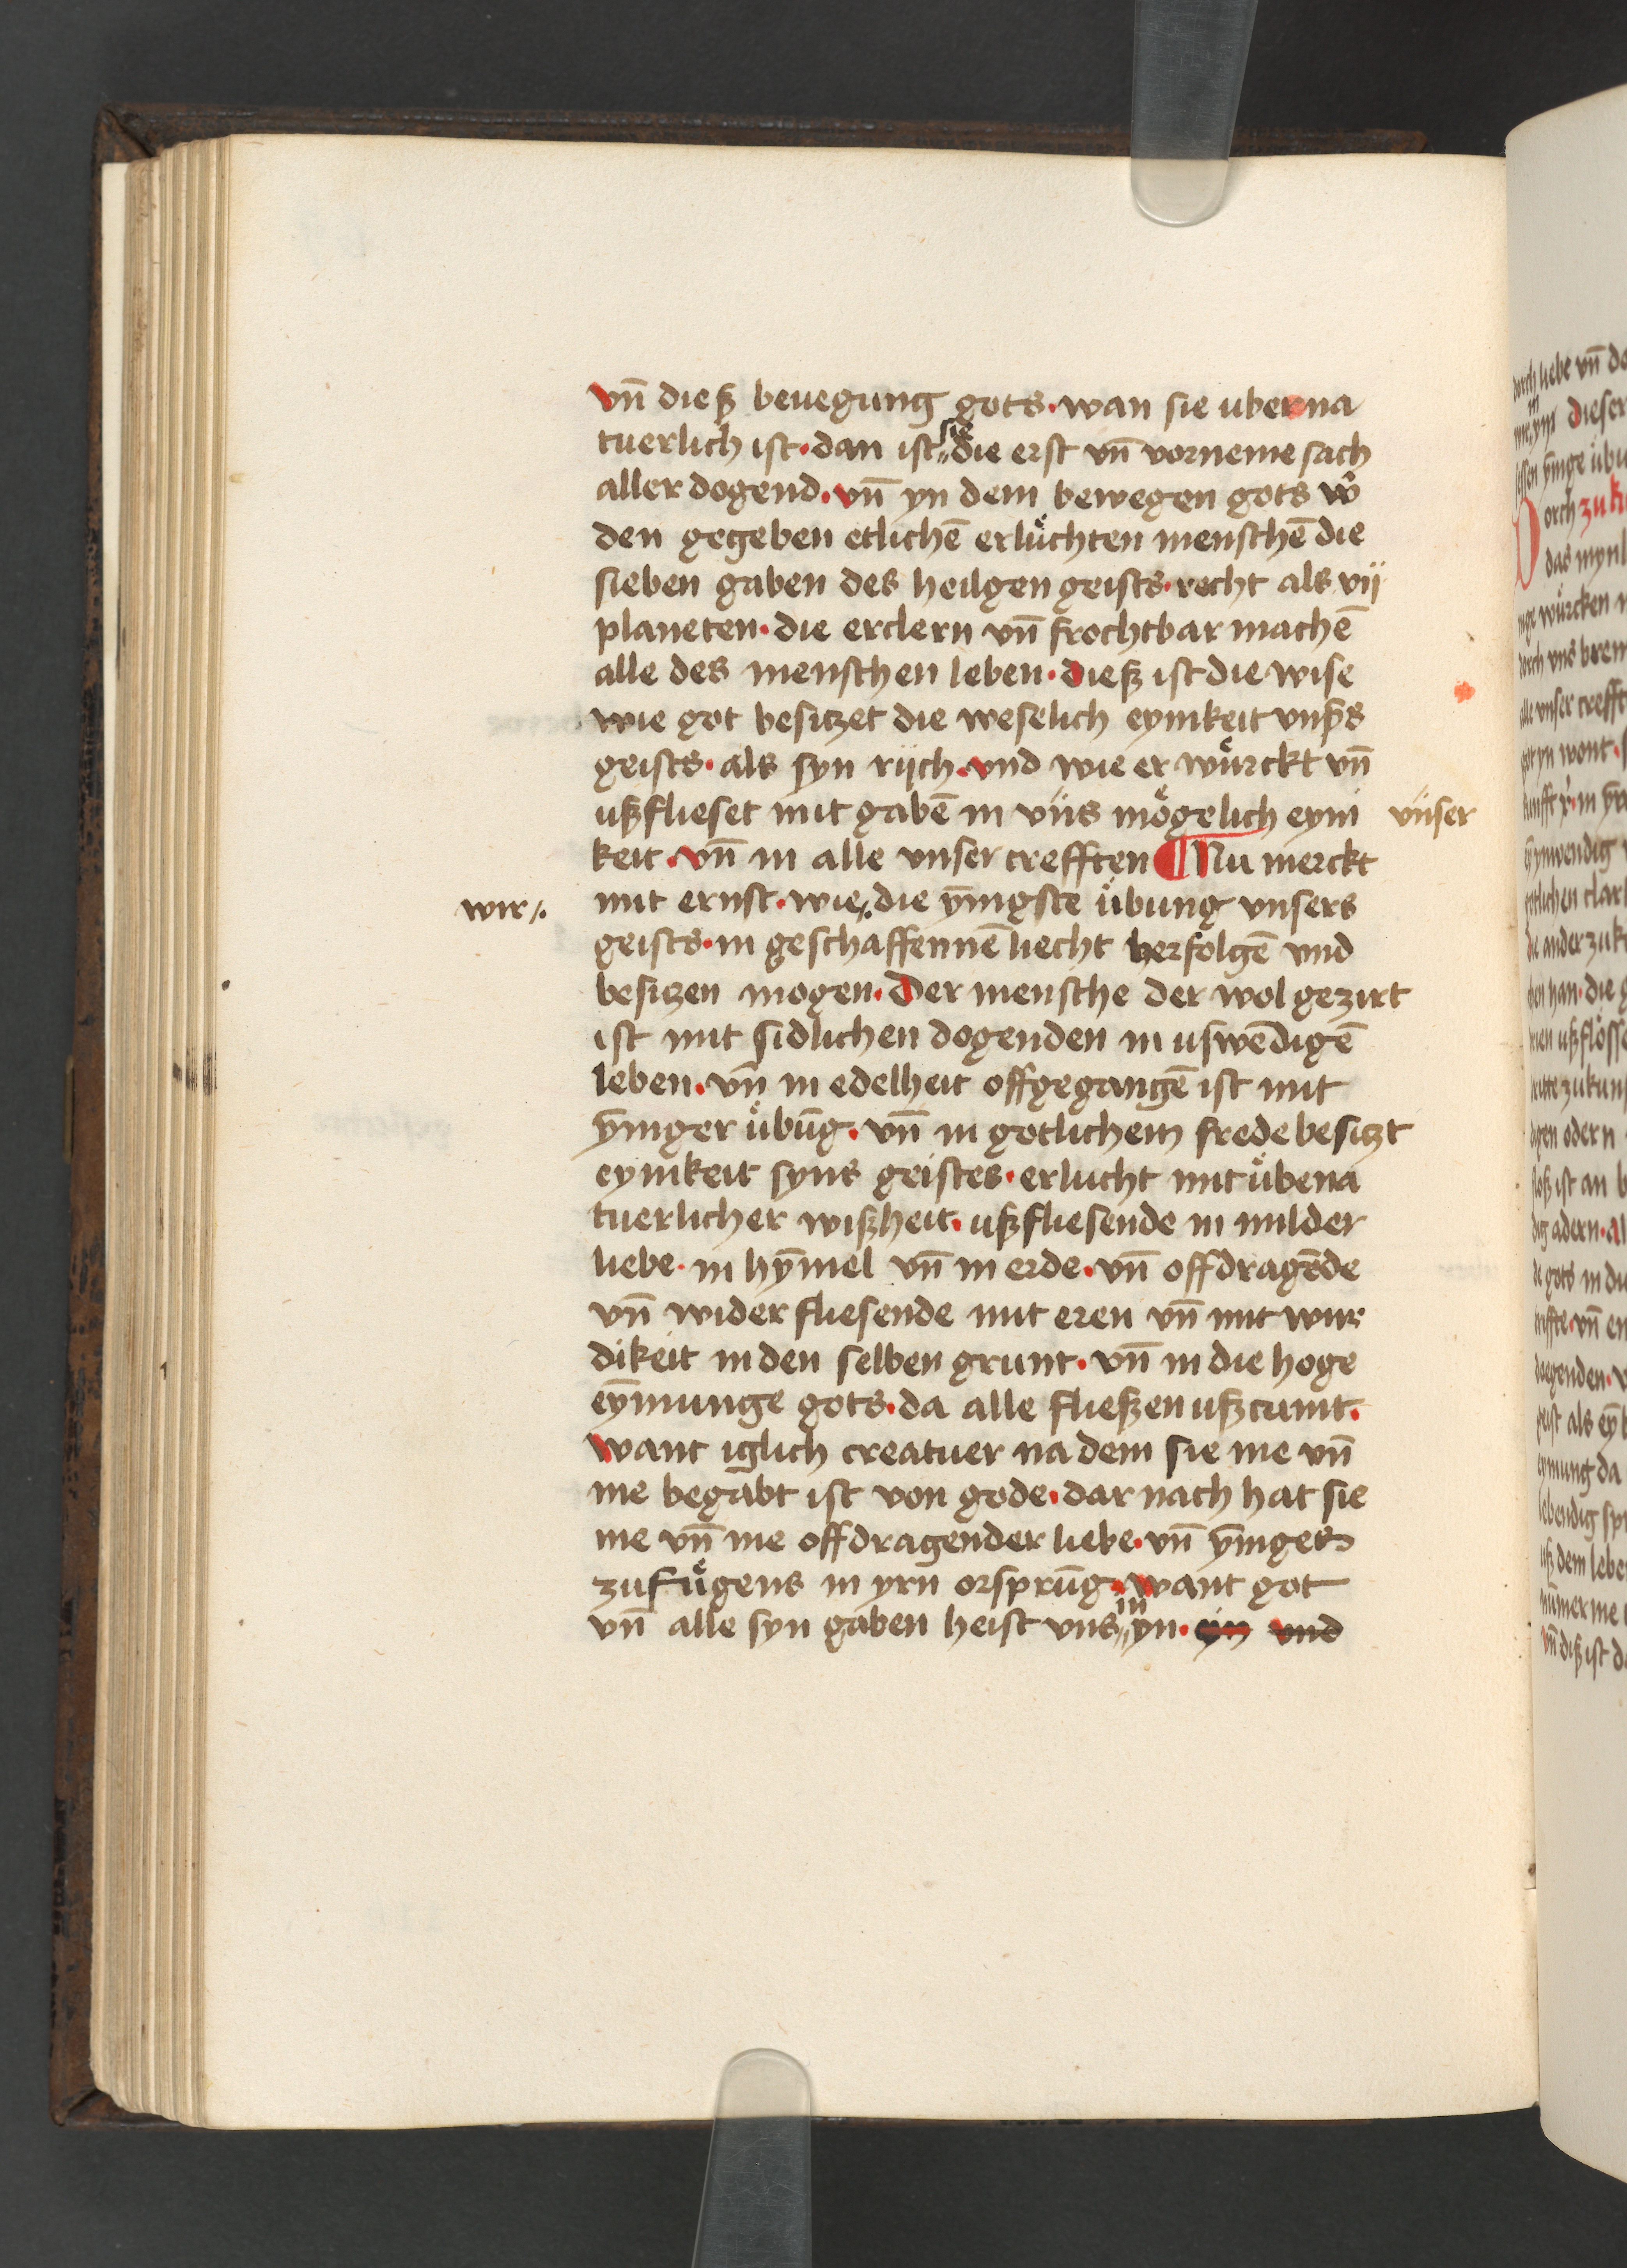 vn̄ dieß beuegung gots · wan sie uberna
tuerlich ist · dan ist sie die erst vn̄ vorneme sach
aller dogend · vn̄ yn dem bewegen gots w̉
den gegeben etlichē erluͤchten menschē die
sieben gaben des heilgen geists · recht als vij
planeten · die erclern vn̄ frochtbar machē
alle des menschen leben · dieß ist die wise
wie got besitzet die weselich eynikeit vnßs
geists · als syn rijch · vnd wie er wuͤrckt vn̄
ußflieset mit gabē in vns moͤgelich eyni vnser
keit · vn̄ in alle vnser crefften ¶ Nu merckt
wir ⁒ mit ernst · wie ⁒ die ȳnigste uͤbung vnsers
geists · in geschaffennē liecht verfolgē vnd
besitzen mogen · Der mensche der wol gezirt
ist mit sidlichen dogenden in uswēdigē
leben · vn̄ in edelheit offgegangē ist mit
ȳniger uͤbūg · vn̄ in gotlichem frede besitzt
eynikeit syns geistes · erlucht mit uͤbena
tuerlicher wißheit · ußfliesende in milder
liebe · in hȳmel vn̄ in erde · vn̄ offdragēde
vn̄ wider fliesende mit eren vn̄ mit wur
dikeit in den selben grunt · vn̄ in die hoge
eȳnunge gots · da alle fließen ußcumt ·
want iglich creatuer na dem sie me vn̄
me begabt ist von gode · dar nach hat sie
me vn̄ me offdragender liebe · vn̄ ȳniges
zufuͤgens in yrn orsprūg · want got
vn̄ alle syn gaben heist vns in yn · yn vnd